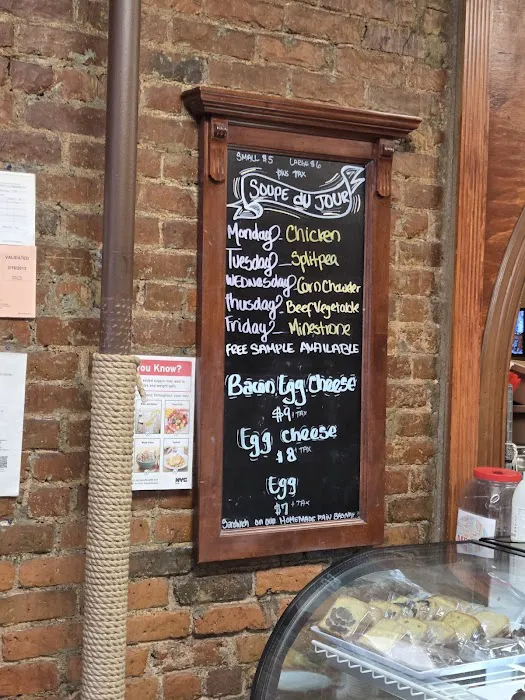 SMALL $5 LARGE $6
PLUS TAX
SOUPE DU JOUR
Monday Chicken
Tuesday Splitpea
WEDNESDAY Corn Chowder
Thursday Beef Vegetable
Friday Minestrone
FREE SAMPLE AVAILABLE
Bacon Egg Cheese
$9 + TAX
Egg Cheese
$8 + TAX
Egg
$7 + TAX
Sandwich on our HOMEMADE PAIN
VALIDATED
ou Know?
NYC